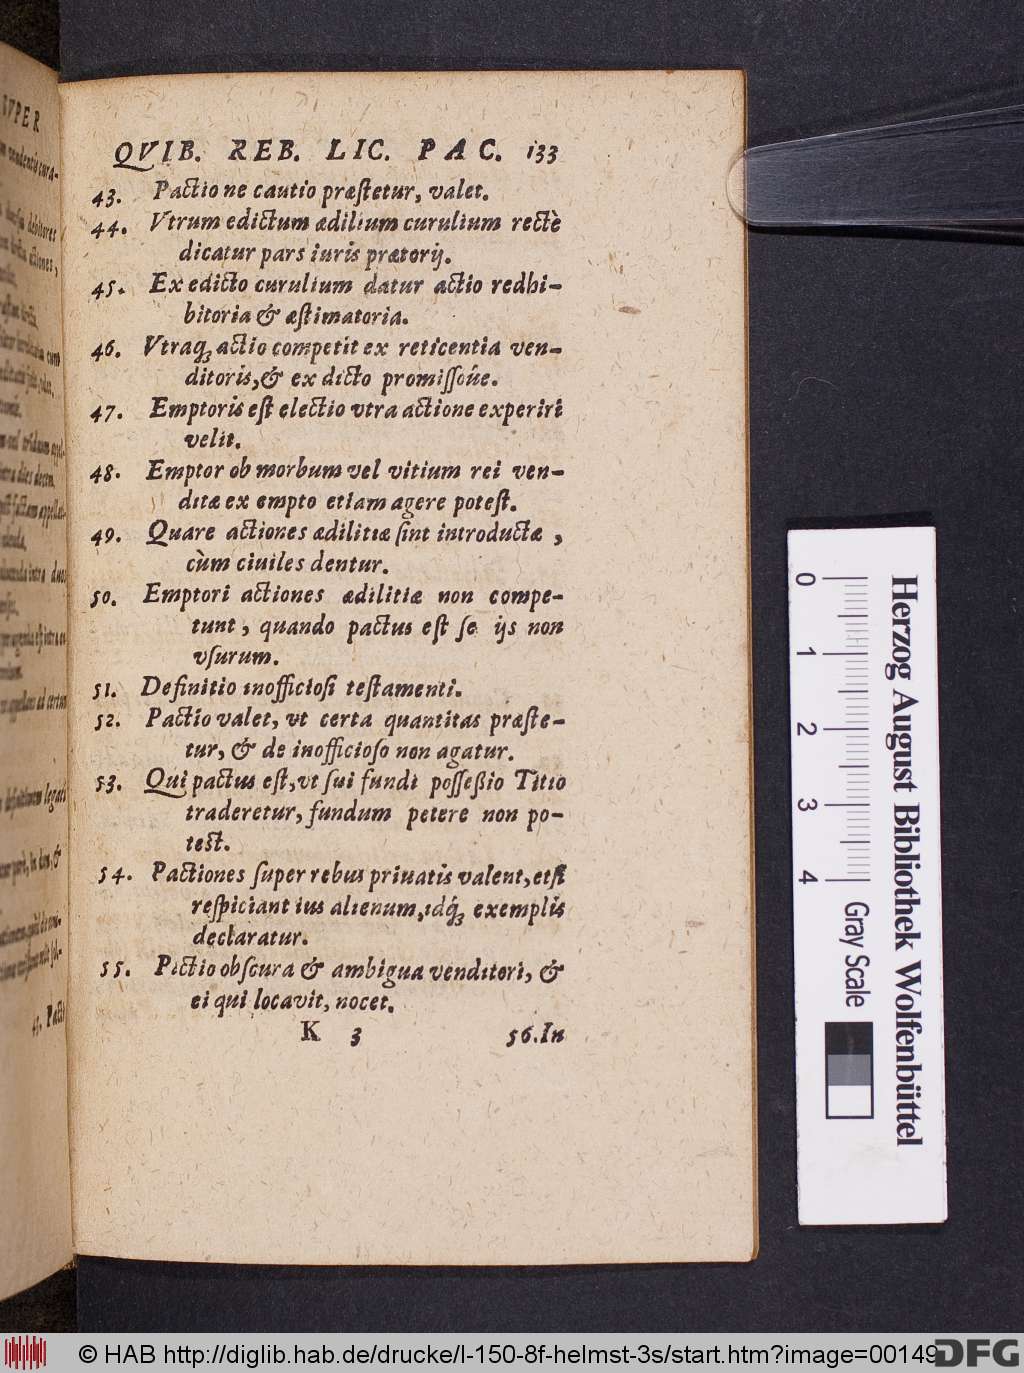 QVIB. REB. LIC. PAC. 133
43. Pactio ne cautio præſtetur, valet.
44. Vtrum edictum ædilium curulium rectè
dicatur pars iuris prætorij.
45. Ex edicto curulium datur actio redhi-
bitoria & æſtimatoria.
46. Vtraq; actio competit ex reticentia ven-
ditoris, & ex dicto promiſſóue.
47. Emptoris eſt electio vtra actione experiri
velit.
48. Emptor ob morbum vel vitium rei ven-
ditæ ex empto etiam agere poteſt.
49. Quare actiones ædilitiæ ſint introductæ,
cùm ciuiles dentur.
50. Emptori actiones ædilitiæ non compe-
tunt, quando pactus eſt ſe ijs non
vſurum.
51. Definitio inofficioſi teſtamenti.
52. Pactio valet, vt certa quantitas præſte-
tur, & de inofficioſo non agatur.
53. Qui pactus eſt, vt ſui fundi poſſeßio Titio
traderetur, fundum petere non po-
test.
54. Pactiones ſuper rebus priuatis valent, etſi
reſpiciant ius alienum, idq́; exemplis
declaratur.
55. Pactio obſcura & ambigua venditori, &
ei qui locavit, nocet.
K 3 56. In
SVPER
debitores
actiones,
legati
& 
43. Pacti
0 1 2 3 4
Gray Scale
Herzog August Bibliothek Wolfenbüttel
© HAB http://diglib.hab.de/drucke/l-150-8f-helmst-3s/start.htm?image=00149
DFG